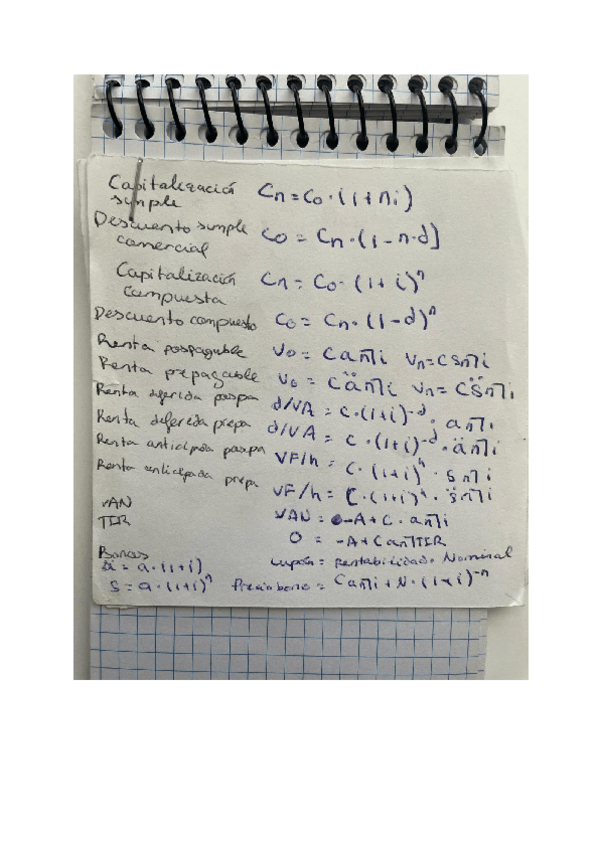 Capitalización simple Cn = Co · (1 + ni)
Descuento simple comercial Co = Cn · (1 - n·d]
Capitalización Compuesta Cn = Co · (1 + i)ⁿ
Descuento compuesto Co = Cn · (1 - d)ⁿ
Renta pospagable Vo = C an⅂i Vn = C sn⅂i
Renta prepagable Vo = C än⅂i Vn = C s̈n⅂i
Renta diferida pospa d/VA = C · (1+i)⁻ᵈ · an⅂i
Renta diferida prepa d/VA = C · (1+i)⁻ᵈ · än⅂i
Renta anticipada pospa VF/h = C · (1+i)ʰ · sn⅂i
Renta anticipada prepa VF/h = C · (1+i)ʰ · s̈n⅂i
VAN VAN = -A + C · an⅂i
TIR 0 = -A + C an⅂TIR
Bonos cupón = Rentabilidad · Nominal
ä = a · (1+i)
s = a · (1+i)ⁿ Precio bono = C an⅂i + N · (1+i)⁻ⁿ